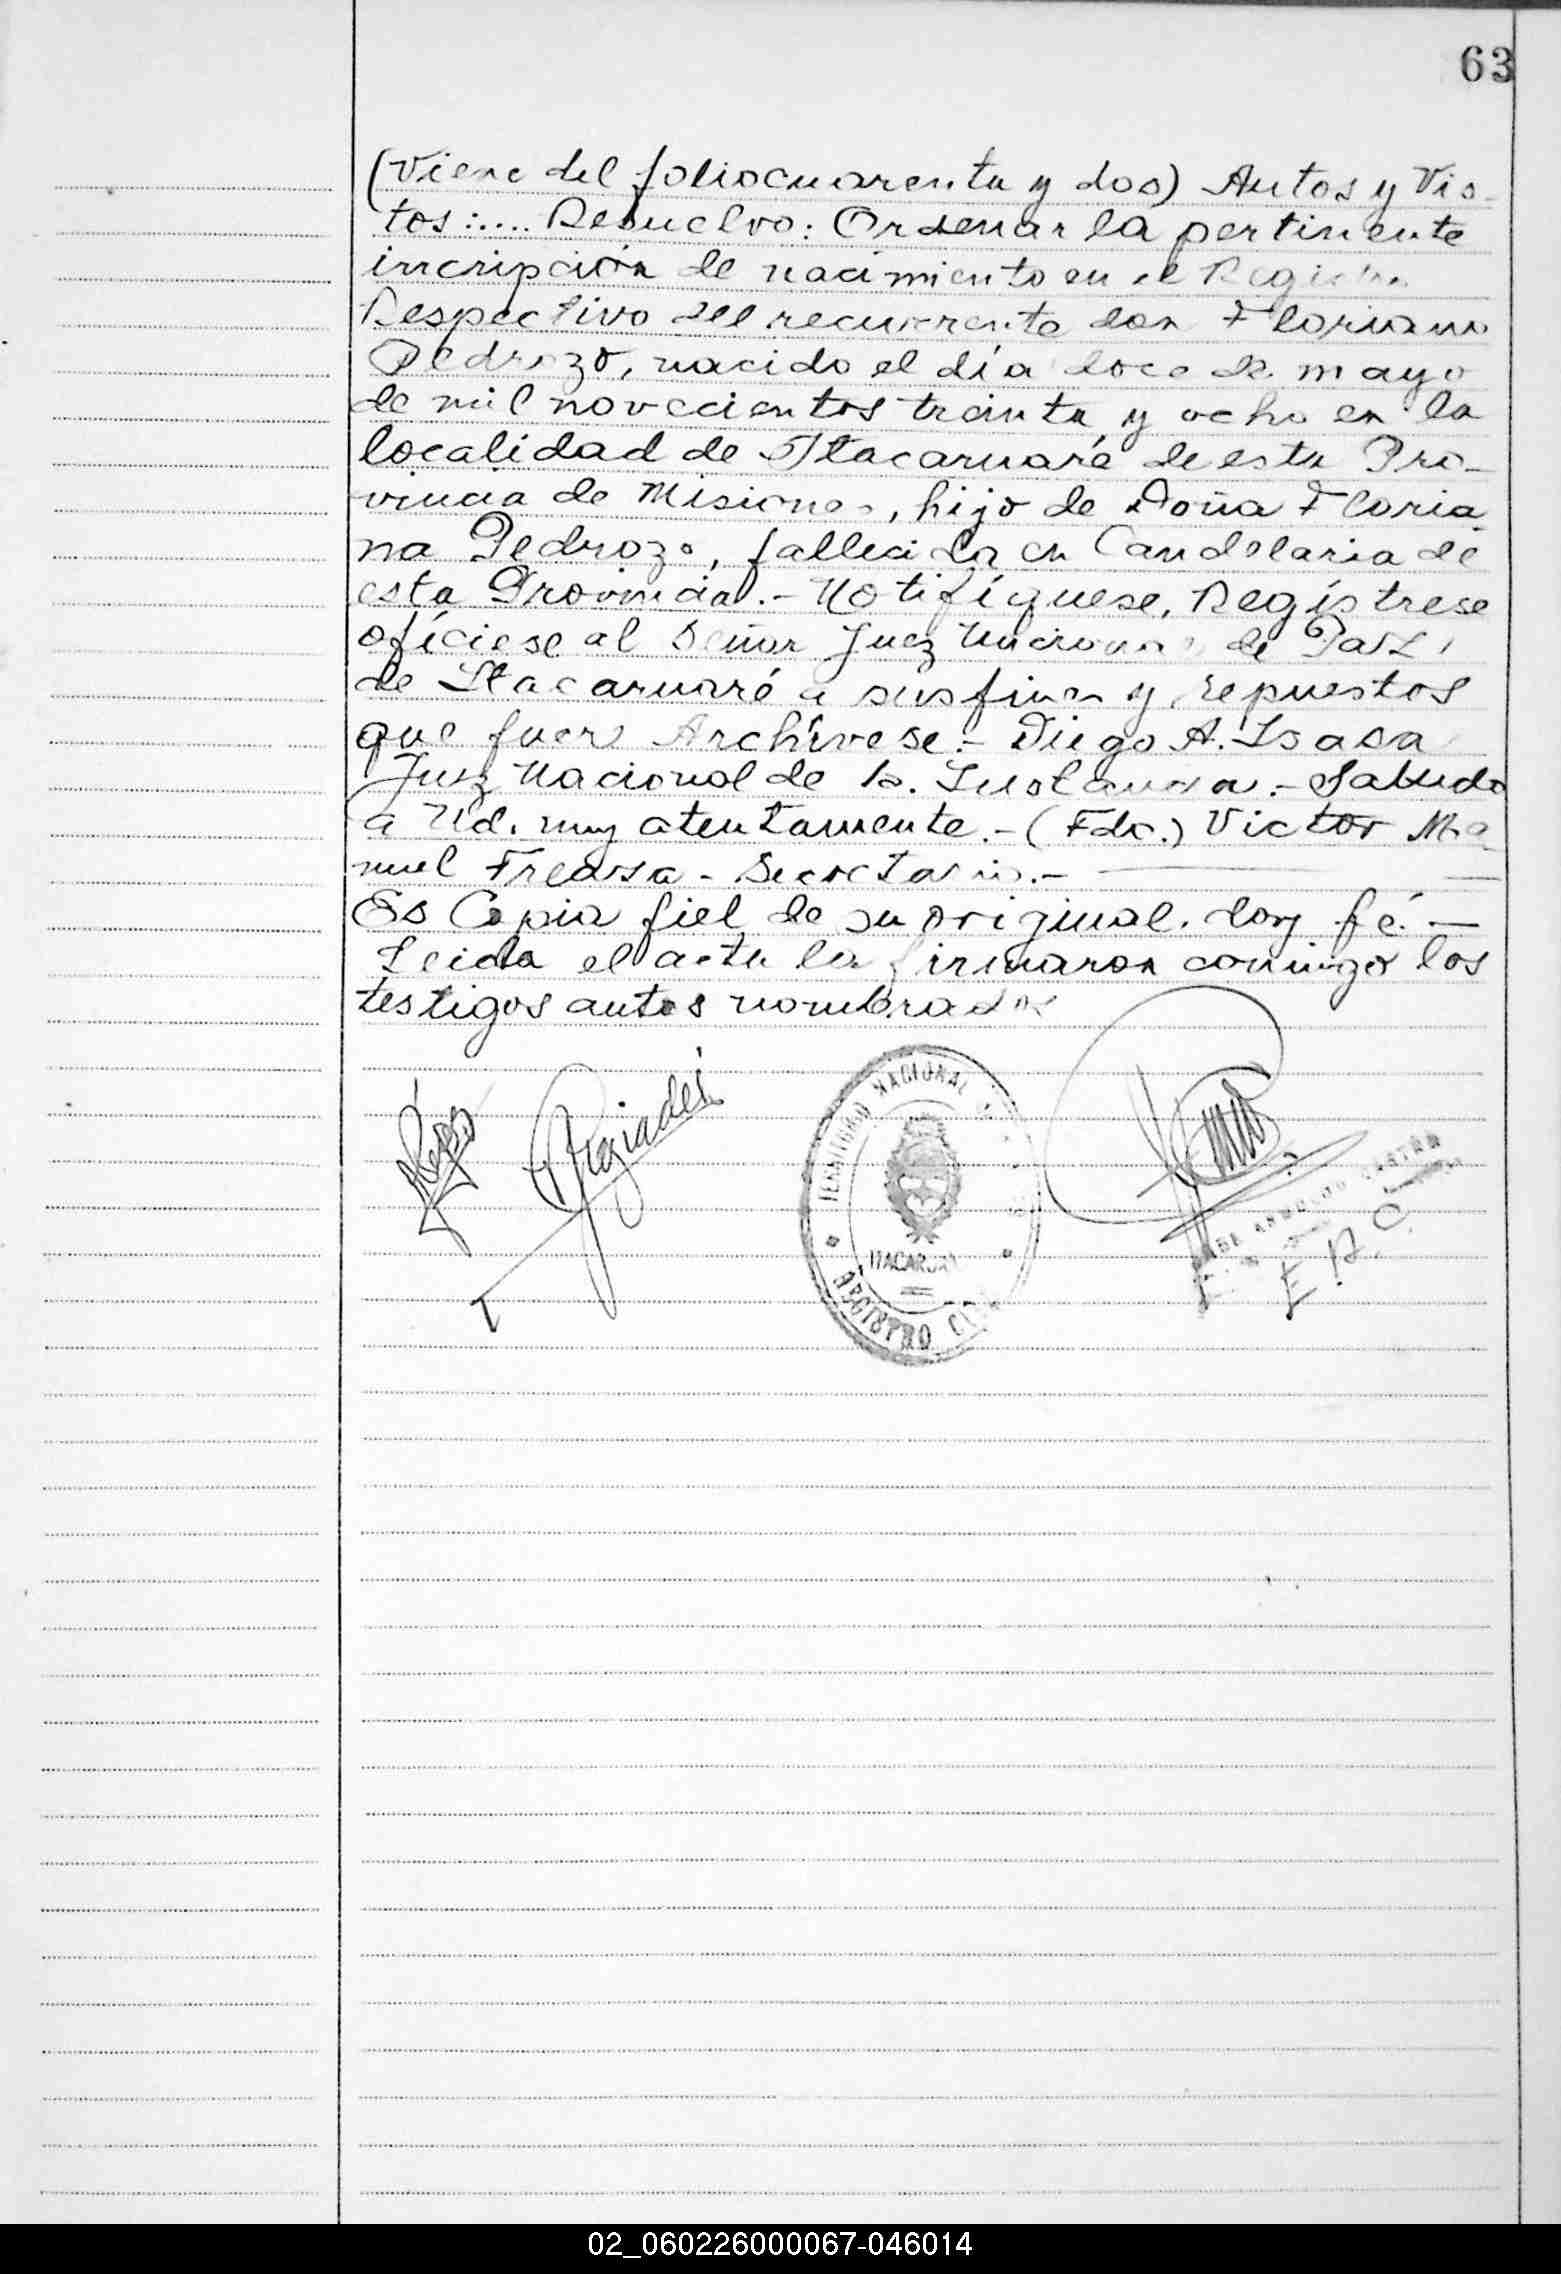 63
(Viene del folio cuarenta y dos) Autos y Vis-
tos:.... Resuelvo: Ordenar la pertinente
inscripción de nacimiento en el Registro
Respectivo del recurrente don Floriano
Pedrozo, nacido el día doce de mayo
de mil novecientos treinta y ocho en la
localidad de Itacaruaré de esta Pro-
vincia de Misiones, hijo de Doña Floria-
na Pedrozo, fallecida en Candelaria de
esta Provincia.- Notifíquese, Regístrese
ofíciese al Señor Juez de Paz
de Itacaruaré a sus fines y repuestos
que fuere Archívese.- Diego A. Isasa
Juez Nacional de 1a. Instancia.- Saludo
a Ud. muy atentamente.- (Fdo.) Victor Ma-
nuel - Secretario.-
Es Copia fiel de su original, doy fé.-
Leida el acta la firmaron conmigo los
testigos antes nombrados
TERRITORIO NACIONAL
ITACARUARE
REGISTRO CIVIL
E. R. C.
02_060226000067-046014